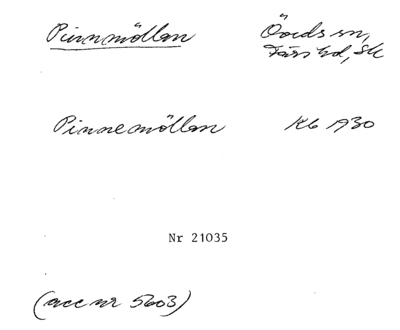 Pinnmöllan Öveds sn,
Färs hd, Sk
Pinnemöllan Kb 1930
Nr 21035
(acc nr 5603)